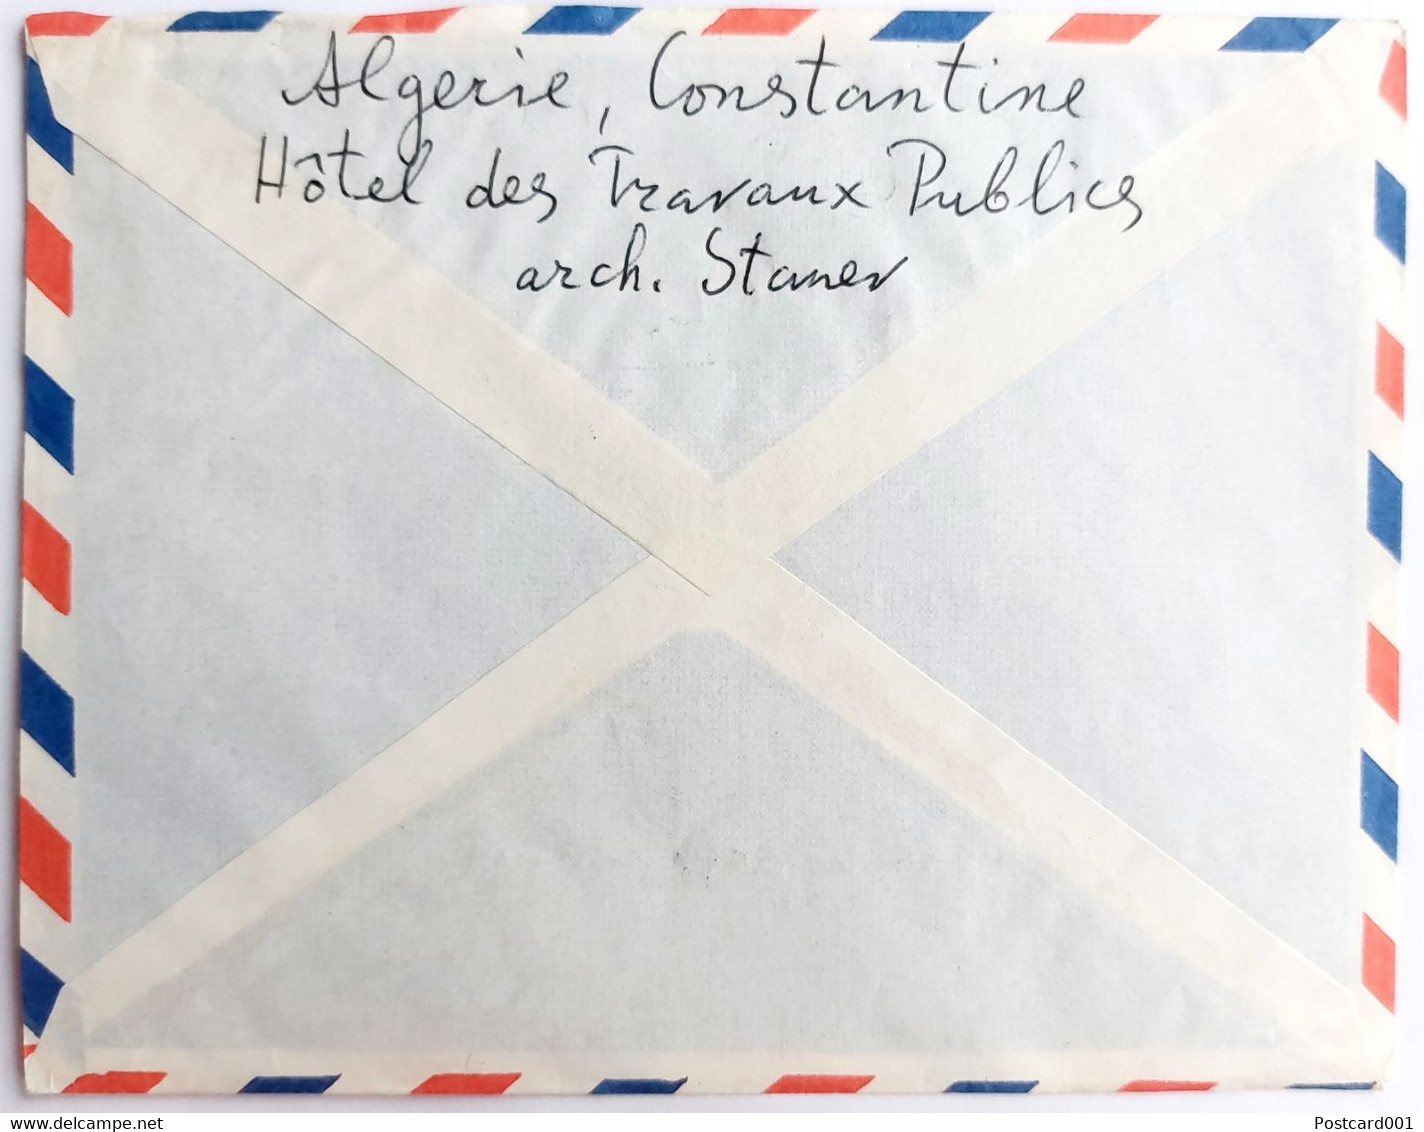 Algerie, Constantine
Hôtel des Travaux Publics
arch. Stanev
www.delcampe.net
Postcard001